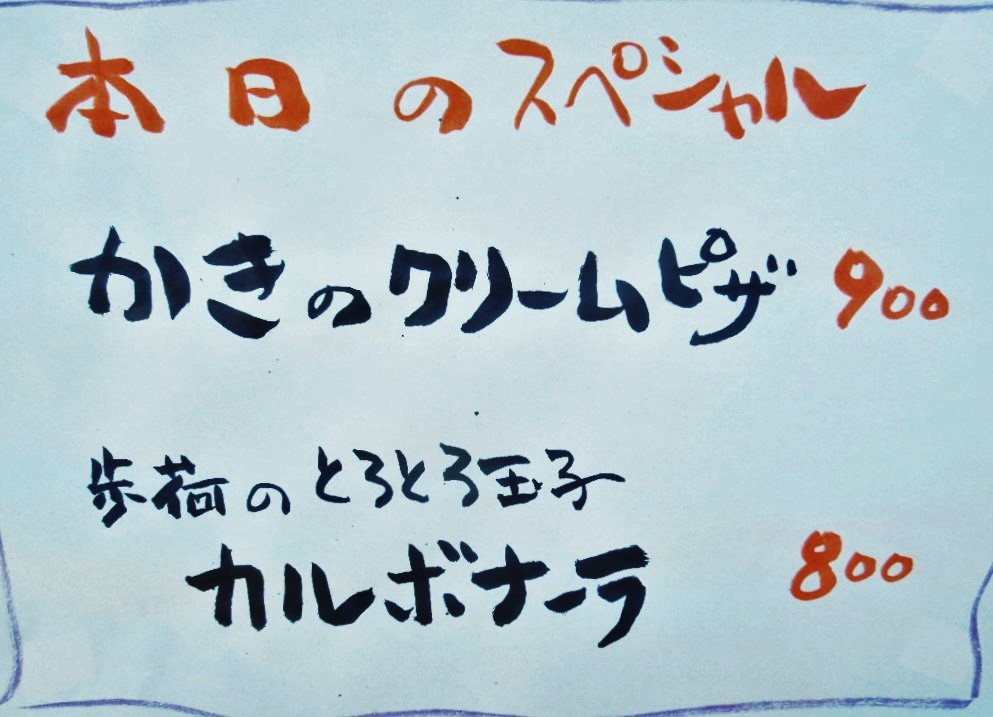 本日のスペシャル
かきのクリームピザ 900
歩荷のとろとろ玉子
カルボナーラ 800